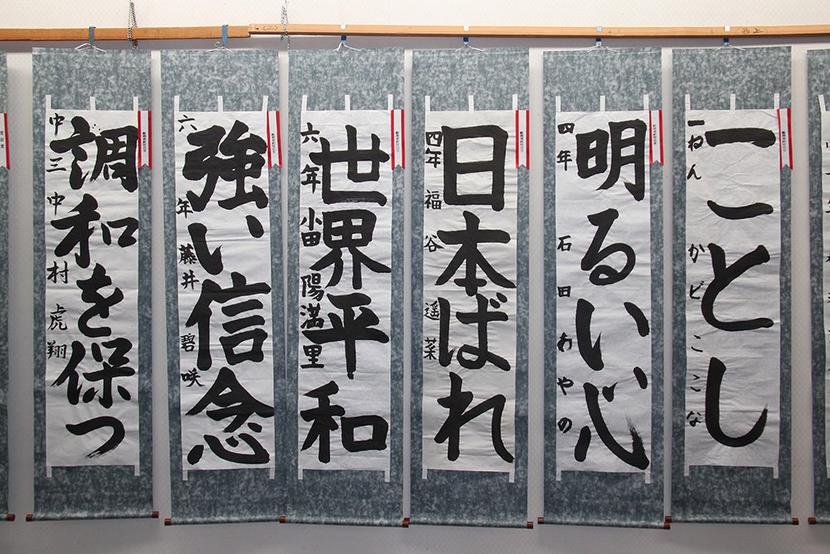 ことし
一ねん かど ここな
明るい心
四年 石田 あやの
日本ばれ
四年 福谷 遥菜
世界平和
六年 小田 陽満里
強い信念
六年 藤井 碧咲
調和を保つ
中三 中村 虎翔